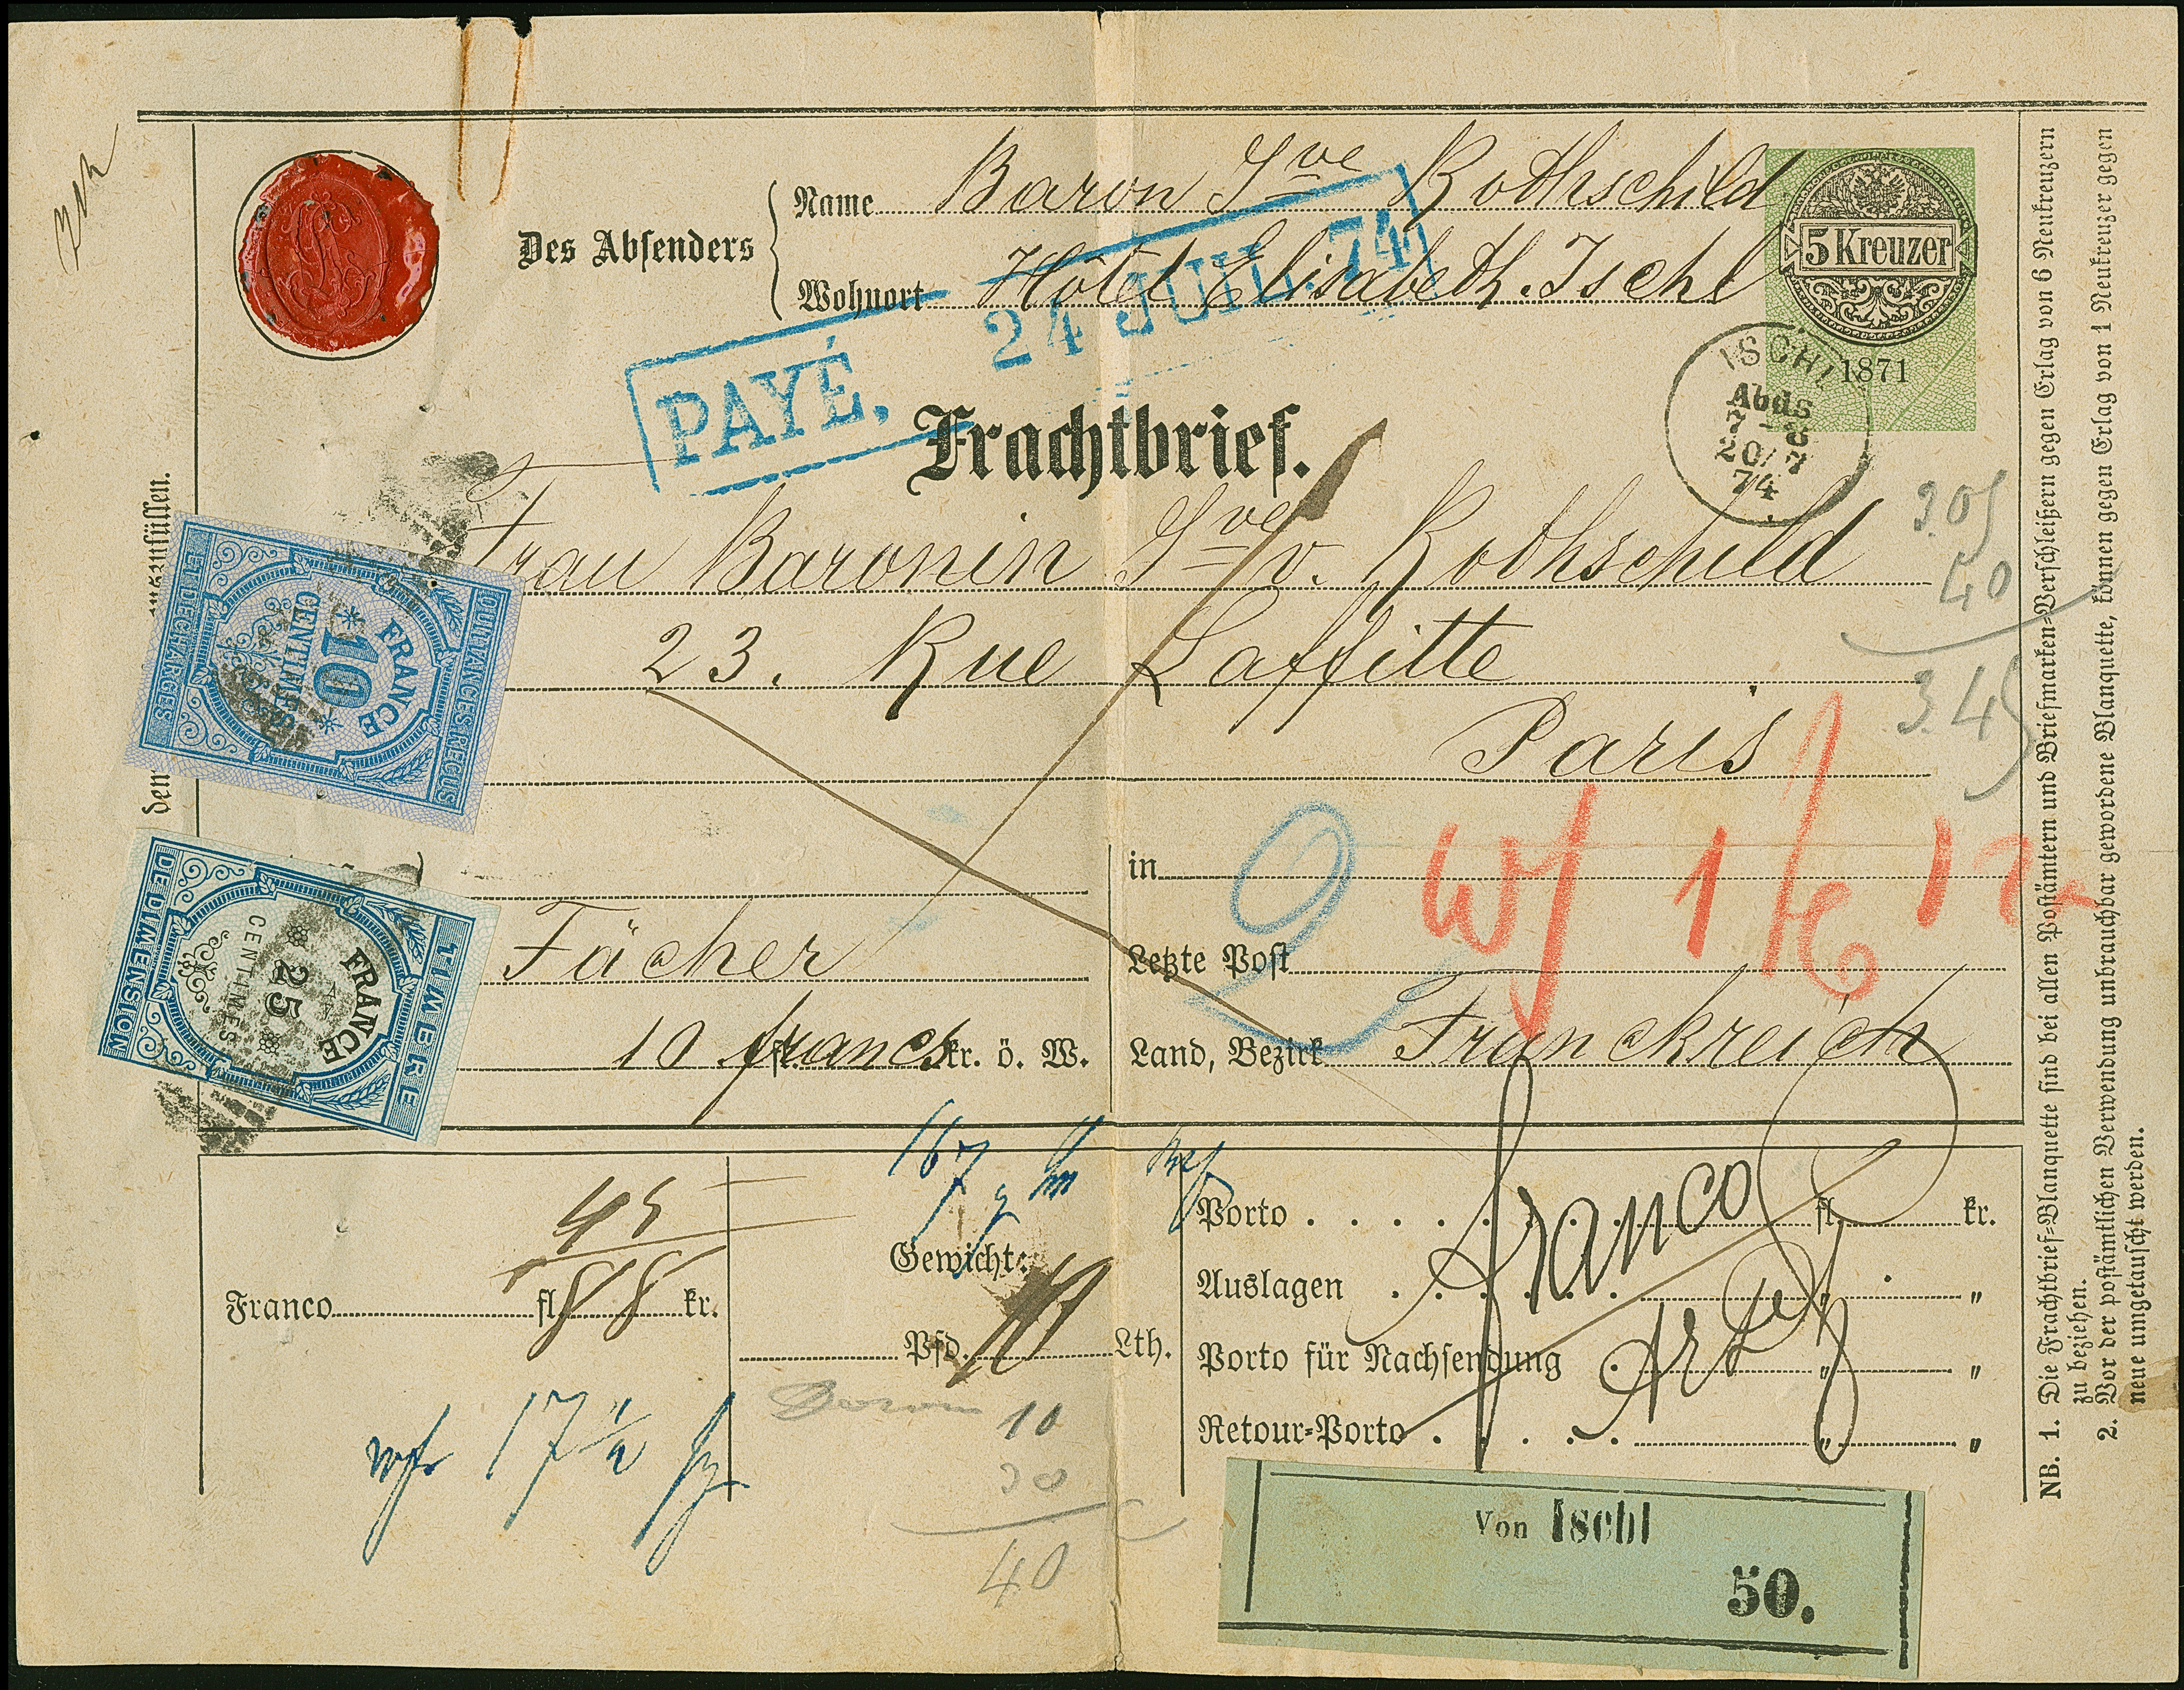 Name Baron Gve Rothschild
Des Absenders
Wohnort Hôtel Elisabeth. Ischl
5 Kreuzer
1871
PAYÉ. 24 JUIL. 74
ISCHL
Abds
7-8
20/7
74
Frachtbrief.
Frau Baronin Gve v. Rothschild
23. Rue Laffitte
Paris
3.05
40
3.45
auszufüllen.
den
QUITTANCES, REÇUS
FRANCE
*10*
CENTIMES
ET DECHARGES
TIMBRE
FRANCE
25
CENTIMES
DE DIMENSION
in
Fächer
Letzte Post
10 francs fl. kr. ö. W.
Land, Bezirk Franckreich
167
Franco fl. kr.
45
88
Gewicht:
Pfd. Lth.
17 1/2
10
30
40
Porto . . . . . . . fl. kr.
Auslagen . . . . . . " "
Porto für Nachsendung . " "
Retour-Porto . . . . . " "
franco
Von Ischl
50.
NB. 1. Die Frachtbrief-Blanquette sind bei allen Postämtern und Briefmarken-Verschleißern gegen Erlag von 6 Neukreuzern
zu beziehen.
2. Vor der postämtlichen Verwendung unbrauchbar gewordene Blanquette, können gegen Erlag von 1 Neukreuzer gegen
neue umgetauscht werden.